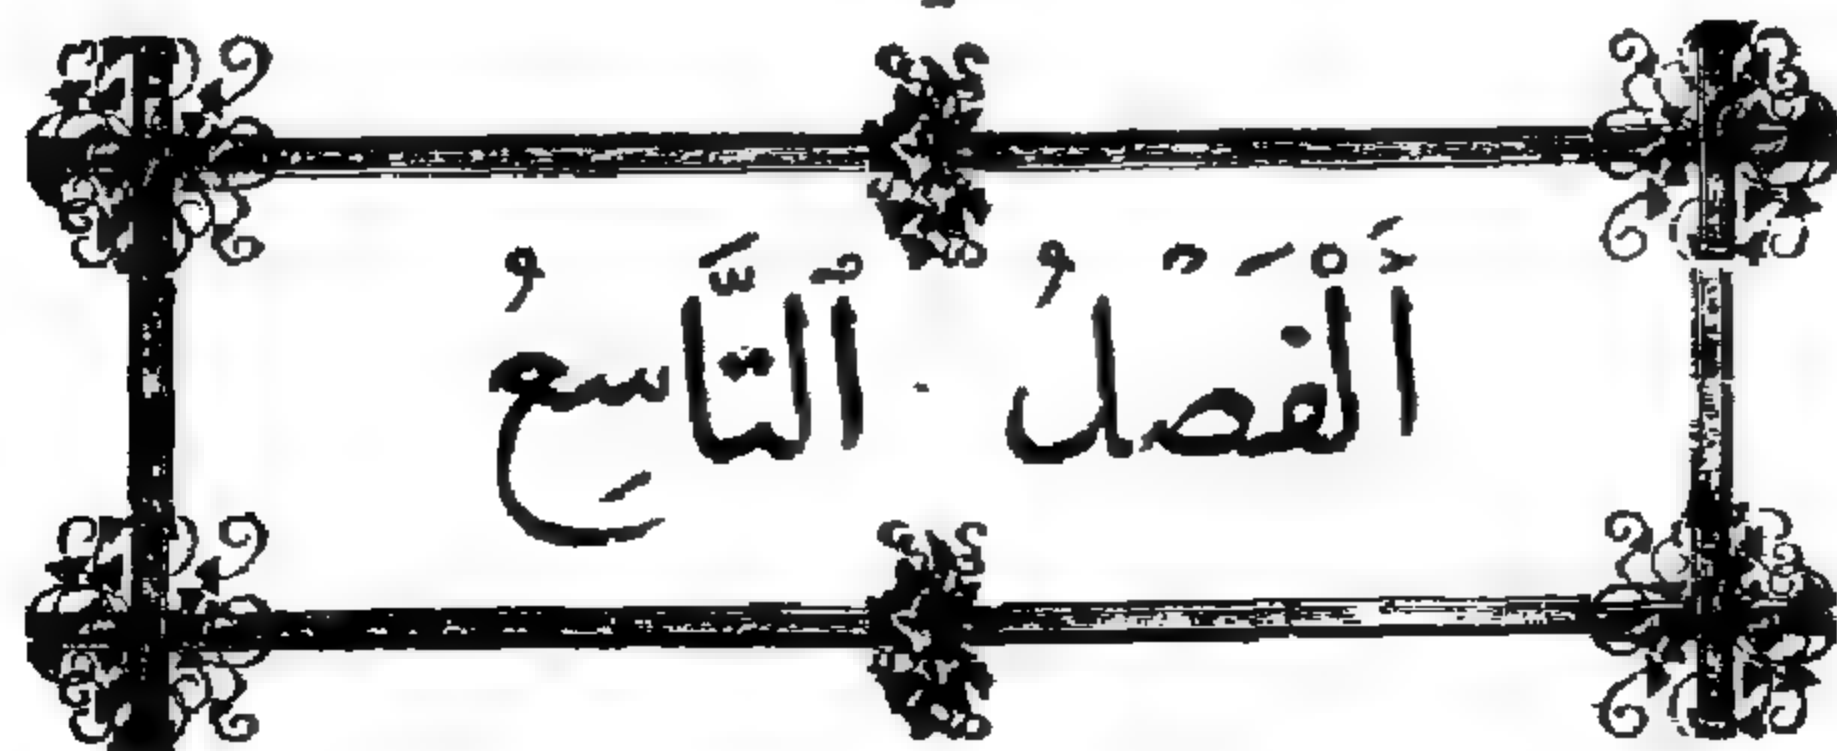 اَلْفَصْلُ ٱلتَّاسِعُ